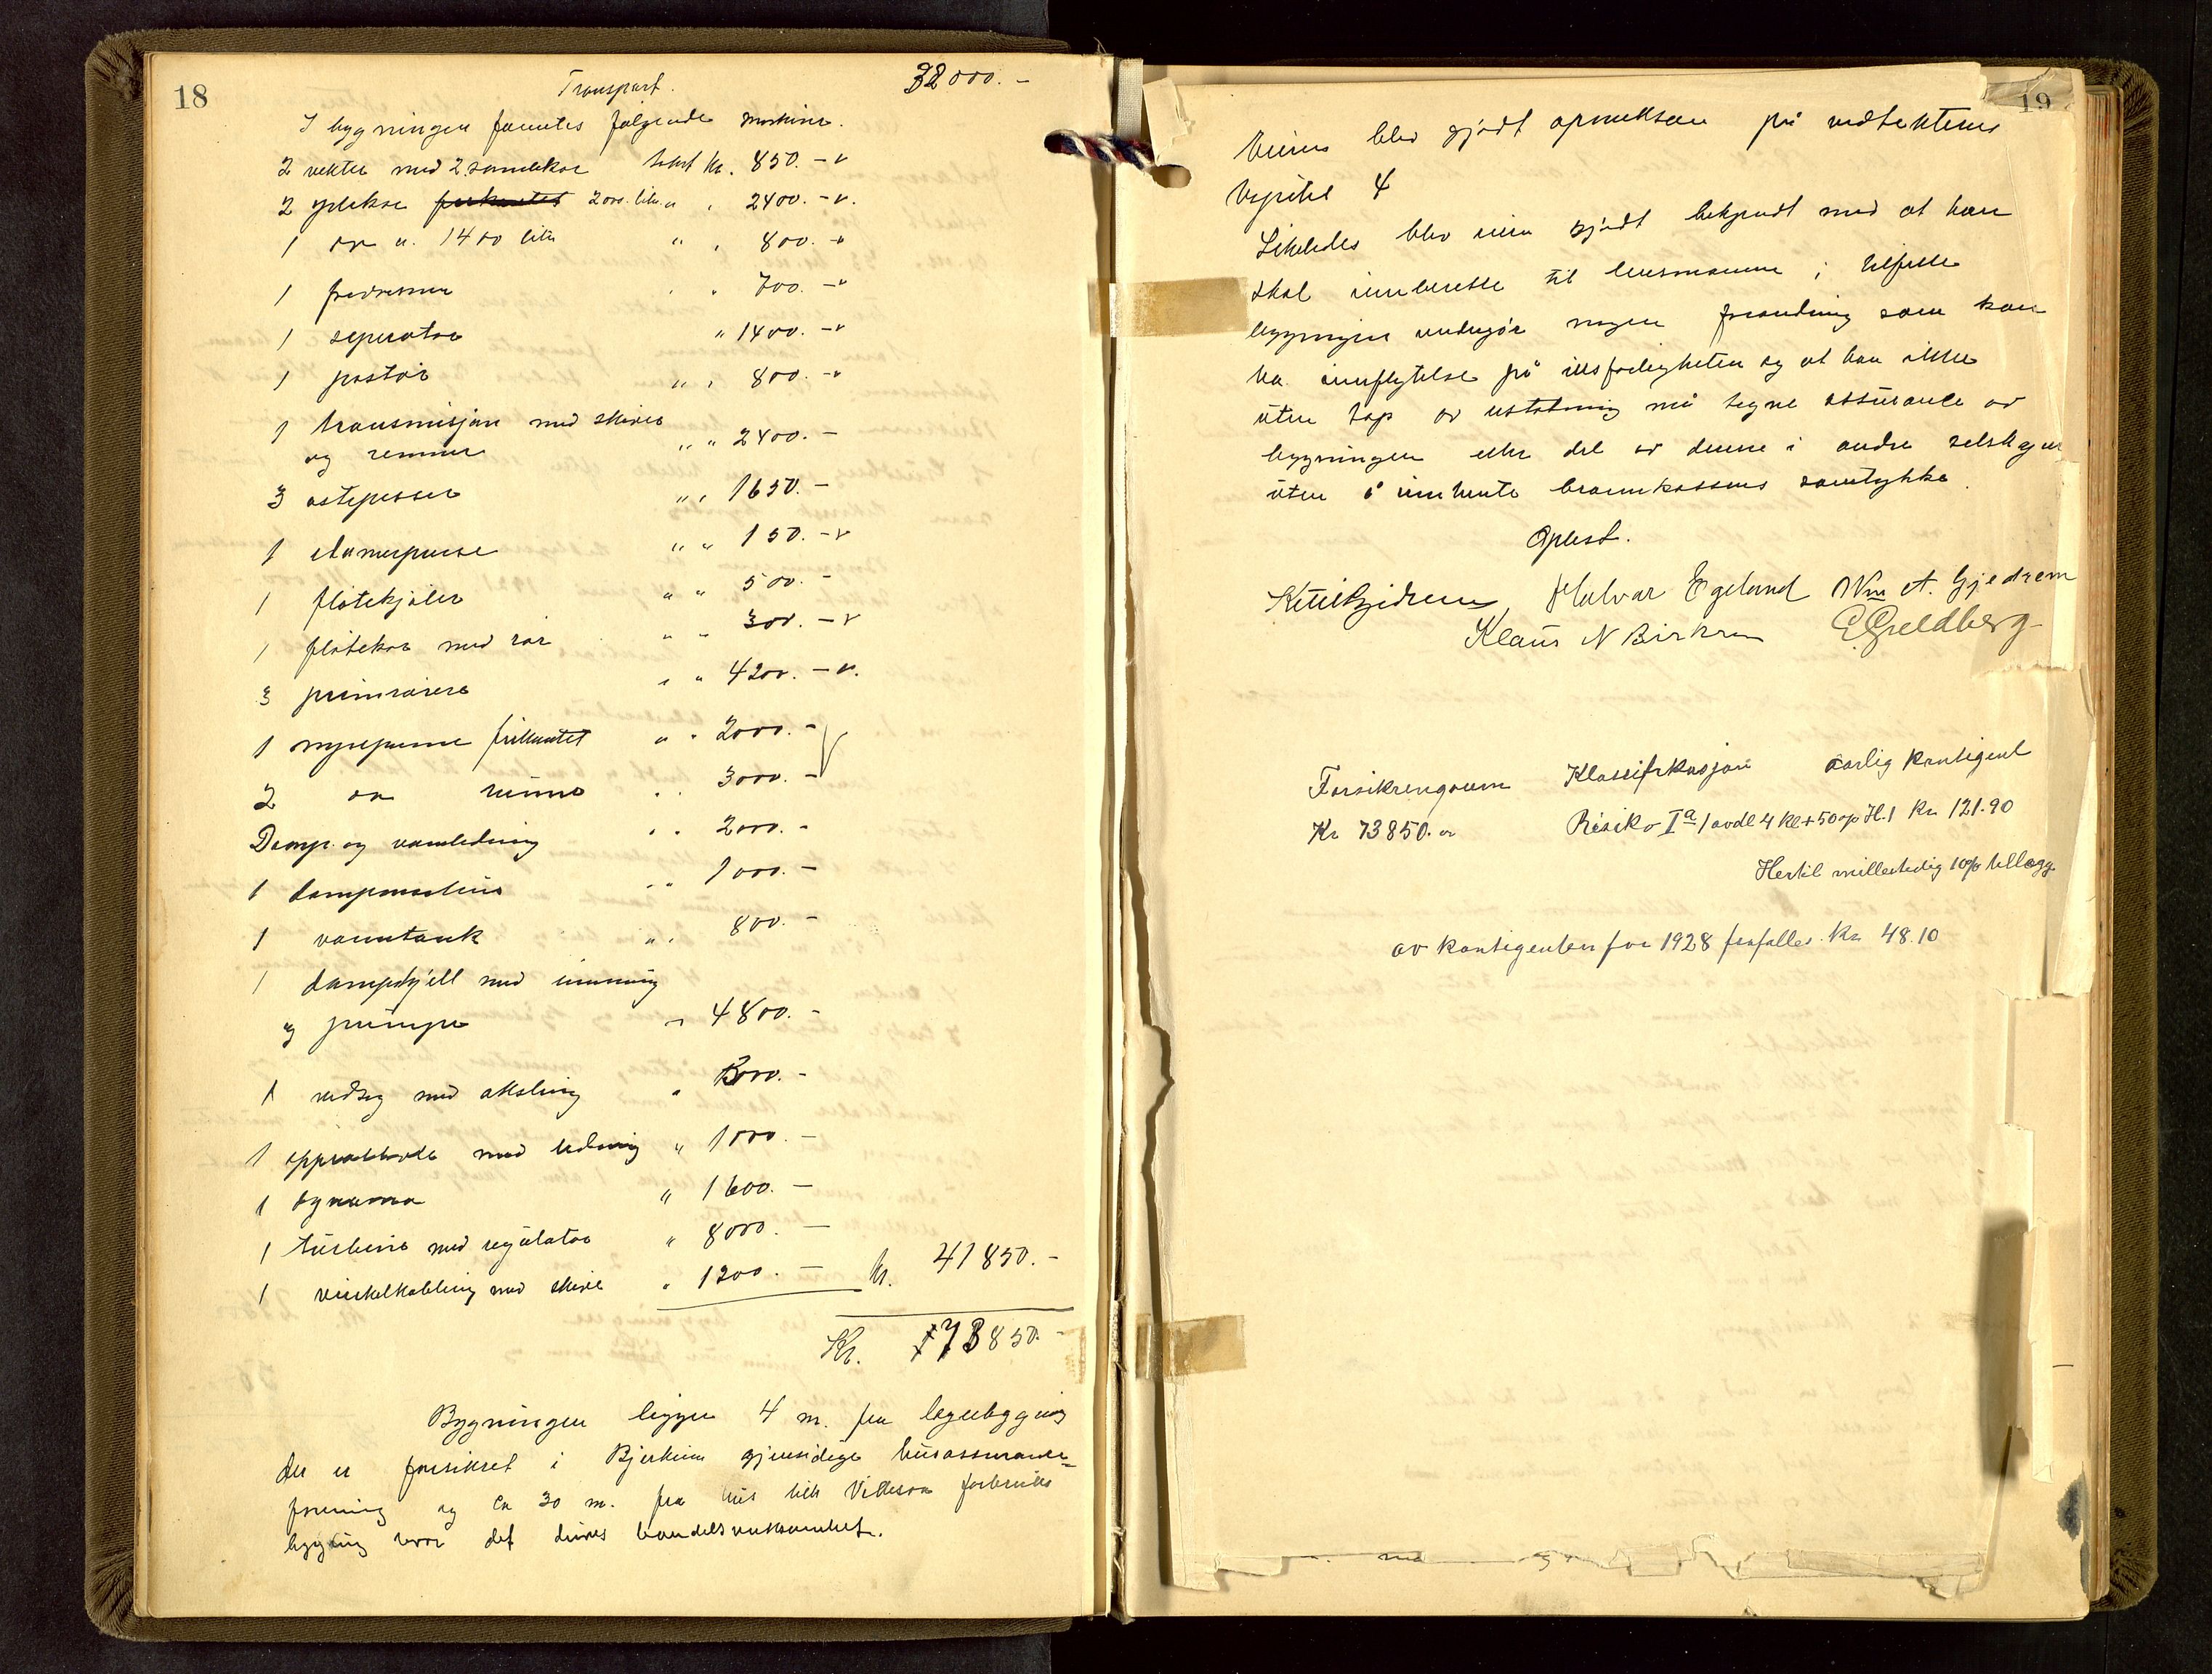 18
Transport. 32000.-
I bygningen fanntes følgende maskiner.
2 vekter med 2 samlekar takst kr. 850.-
2 ystekar 2000 liter " " 2400.-
1 do a. 1400 liter " " 800.-
1 " 700.-
1 seperator " 1400.-
1 pastør " " 800.-
1 transmisjon med skiver
og remmer " " 2400.-
3 ostepresser " " 1650.-
1 " " 150.-
1 fløtekjøler " " 500.-
1 fløtekar med rør " " 300.-
3 primrørere " " 4200.-
1 mysepanne firkantet " " 2000.-
2 do runne " " 3000.-
Damp og vannledning " " 2000.-
1 dampmaskine " " 1000.-
1 vanntank " " 800.-
1 dampkjell med innmuring
og pumpe " 4800.-
1 vedsag med aksling " 300.-
1 med ledning " 1000.-
1 dynamo " 1600.-
1 turbine med regulator " 8000.-
1 vinkelkobling med skive " 1200.- kr. 41850.-
Kr. 73850.-
Bygningen ligger 4 m. fra lagerbygning
der er forsikret i Bjerkreim gjensidige husassuranse=
forening og ca 30 m. fra hus tilh. Vikeså forbruks
bygning hvor det drives handelsvirksomhet.
19
Eieren blev gjort opmerksom på vedtektenes
kapitel 4
Likeledes blev eieren gjort bekjendt med at han
skal innberette til lensmannen i tilfelle
bygningen undergår nogen forandring som kan
ha innflytelse på ildsfarligheten og at han ikke
uten tap av erstatning må tegne assurance av
bygningen eller del av denne i andre selskaper
uten å innhente brannkassens samtykke.
Oplest.
Ketil Gjedrem, Halvar Egeland Nm A. Gjedrem
Klaus N Birkrem E. Goldberg
Forsikringssum Klassifikasjon aarlig kontigent
Kr 73850.oo Risiko Ia / avdl 4 kl + 50 % H. / Kr 121.90
Hertil midlertidig 10% tillegg
av kontigenten for 1928 forfaller. Kr 48.10